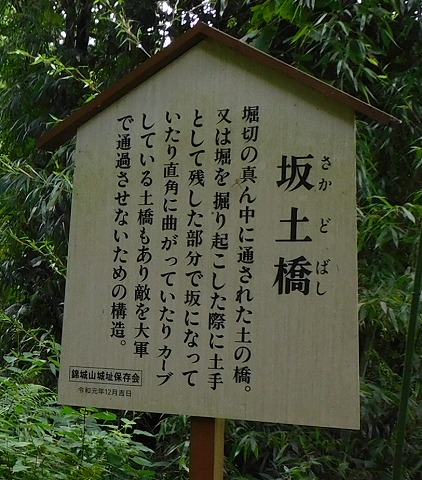 坂土橋
さかどばし
堀切の真ん中に通された土の橋。
又は堀を掘り起こした際に土手
として残した部分で坂になって
いたり直角に曲がっていたりカーブ
している土橋もあり敵を大軍
で通過させないための構造。
錦城山城址保存会
令和元年12月吉日